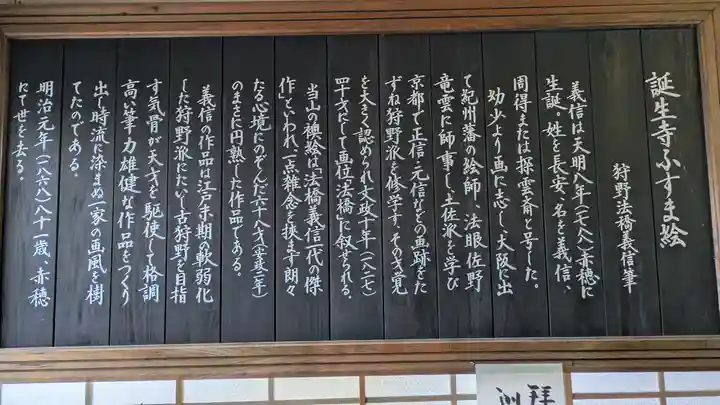 誕生寺ふすま絵
狩野法橋義信筆
義信は天明八年(一七八八)赤穂に
生誕。姓を長安、名を義信、
周得または探雲斎と号した。
幼少より画に志し、大阪に出
て紀州藩の絵師、法眼佐野
竜雲に師事し、土佐派を学び
京都で正信、元信などの画跡をた
ずね狩野派を修学す、そのき覚
を大きく認められ文政十年(一八二七)
四十才にして画位「法橋」に叙せられる。
当山の襖絵は「法橋」義信一代の傑
作といわれ、一点雑念を挟まず朗々
たる心境にのぞんだ六十八才(安政二年)
のまさに円熟した作品である。
義信の作品は江戸末期の軟弱化
した狩野派にたいし古狩野を目指
す気骨が天才を駆使して格調
高い筆力雄健な作品をつくり
出し時流に染まぬ一家の画風を樹
てたのである。
明治元年(一八六八)八十一歳、赤穂
にて世を去る。
拝